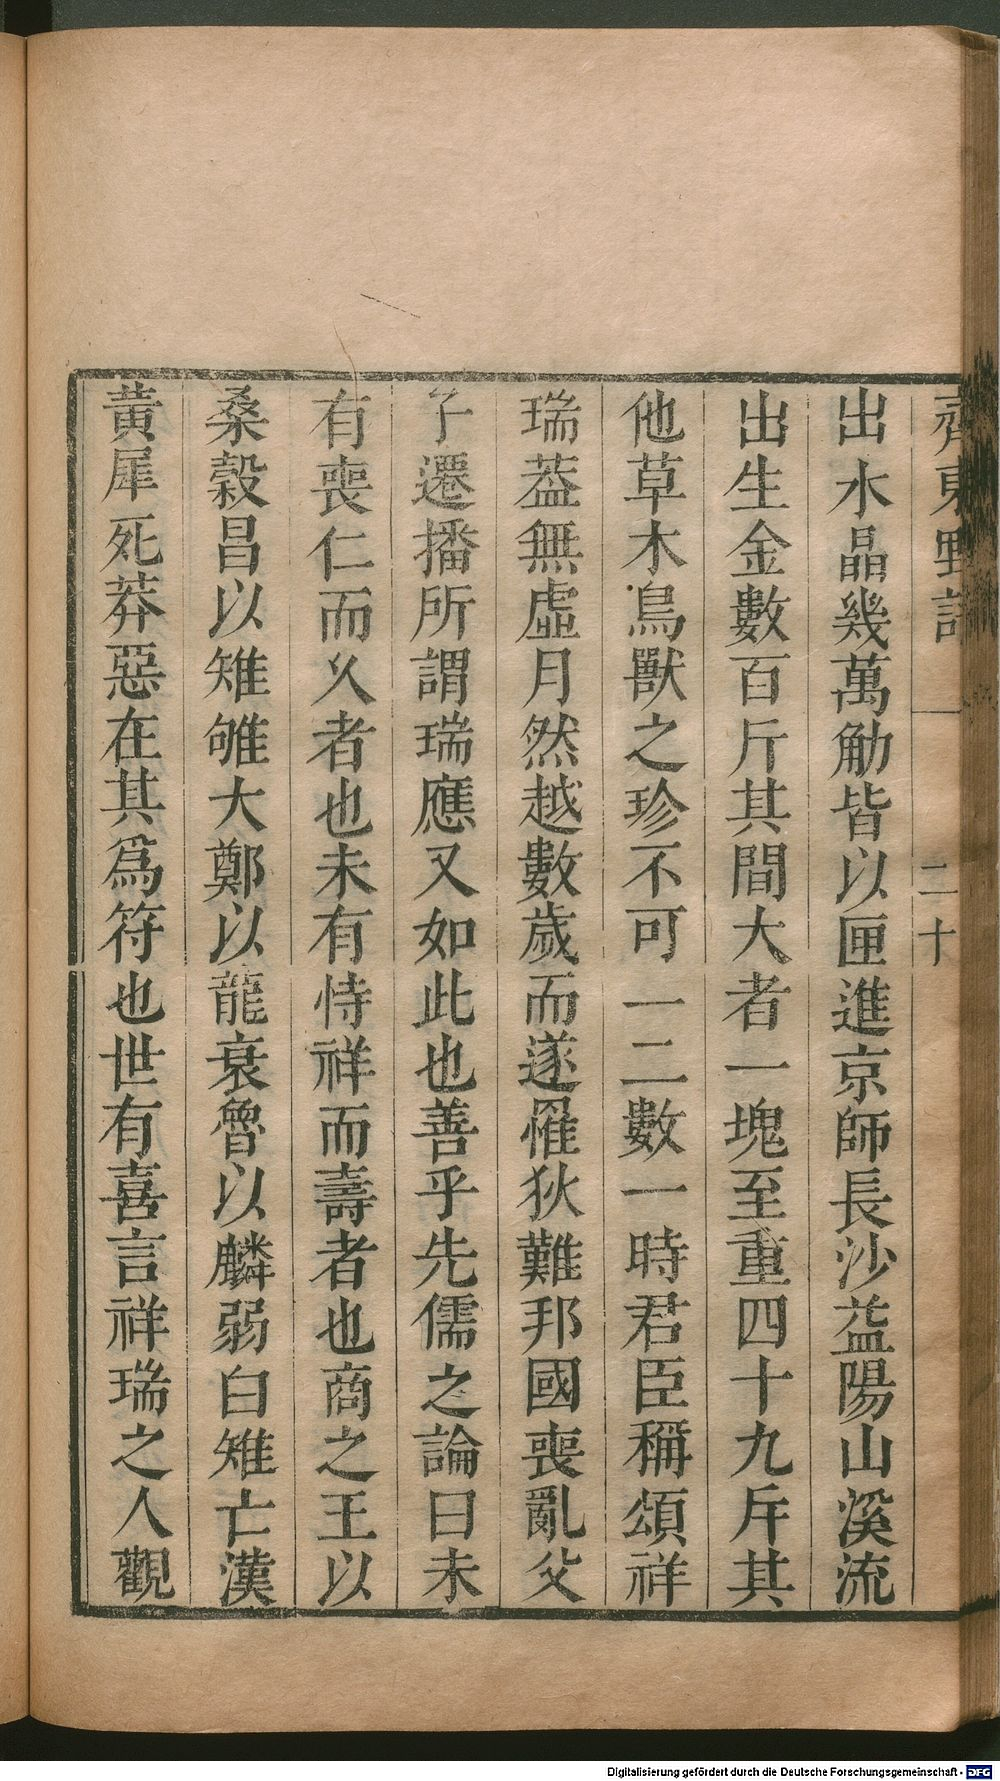 齊東野語 一 二十
出水晶幾萬觔皆以匣進京師長沙益陽山溪流
出生金數百斤其間大者一塊至重四十九斤其
他草木鳥獸之珍不可一二數一時君臣稱頌祥
瑞葢無虛月然越數歲而遂罹狄難邦國喪亂父
子遷播所謂瑞應又如此也善乎先儒之論曰未
有喪仁而乆者也未有恃祥而壽者也商之王以
桑榖昌以雉雊大鄭以龍衰魯以麟弱白雉亡漢
黃犀死莽惡在其爲符也世有喜言祥瑞之人觀
Digitalisierung gefördert durch die Deutsche Forschungsgemeinschaft - DFG